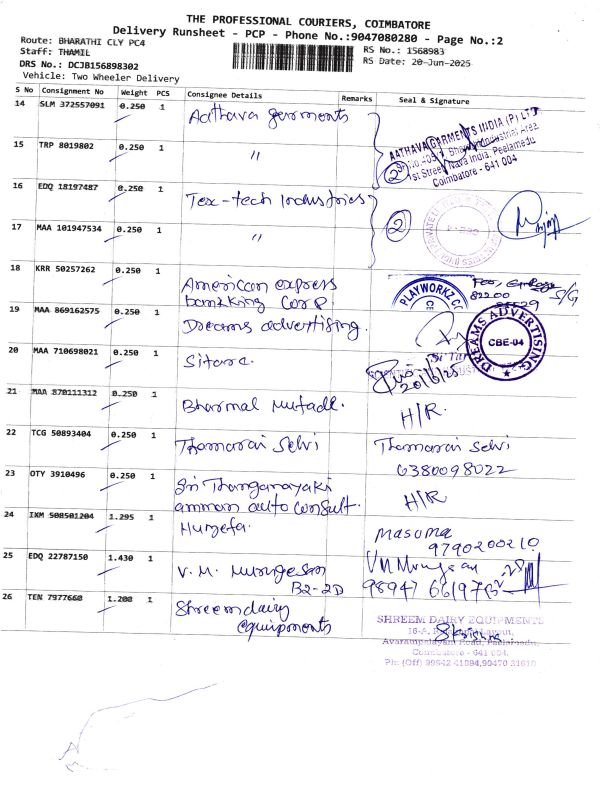 THE PROFESSIONAL COURIERS, COIMBATORE
Delivery Runsheet - PCP - Phone No.:9047080280 - Page No.:2
Route: BHARATHI CLY PC4
Staff: THAMIL
DRS No.: DCJB156898302
Vehicle: Two Wheeler Delivery
RS No.: 1568983
RS Date: 20-Jun-2025
S No Consignment No Weight PCS Consignee Details Remarks Seal & Signature
14 SLM 372557091 0.250 1 Aathava garments
AATHAVA GARMENTS INDIA (P) LTD
Industrial Area
1st Street, Nava India, Peelamedu
Coimbatore - 641 004
15 TRP 8019802 0.250 1 "
2
16 EDQ 18197487 0.250 1 Tex-tech Industries
17 MAA 101947534 0.250 1 "
2
18 KRR 50257262 0.250 1 American express
bankking Corp.
PLAYWORKZ
82200
S/G
19 MAA 869162575 0.250 1 Dreams advertising.
DREAMS ADVERTISING
CBE-04
20 MAA 710698021 0.250 1 Sitara.
20/6/25
21 MAA 870111312 0.250 1 Bharmal Mufadl.
H/R.
22 TCG 50893404 0.250 1 Thamarai Selvi
Thamarai Selvi
6380098022
23 OTY 3910496 0.250 1 Sri Thanganayaki
amman auto consult.
H/R
24 IXM 508501204 1.295 1 Huzefa.
Masuma
9790200210
25 EDQ 22787150 1.430 1 V. M. Murugesan
B2-2D
VM Murugesan
98947 66197
26 TEN 7977660 1.200 1 Shreem dairy
equipments
SHREEM DAIRY EQUIPMENTS
Avarampalayam Road, Peelamedu,
Coimbatore - 641 004.
Ph: (Off) 99942 41094,90470 31610